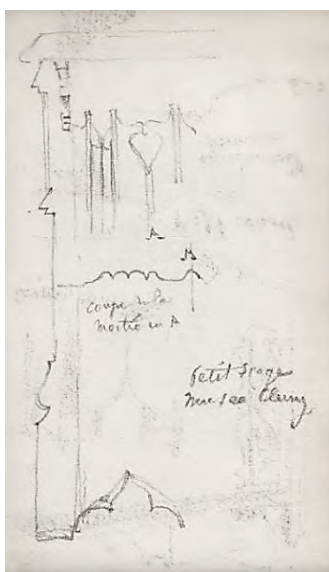 A
A
coupe de la
moitié en A
Petit Siege
Musee Cluny